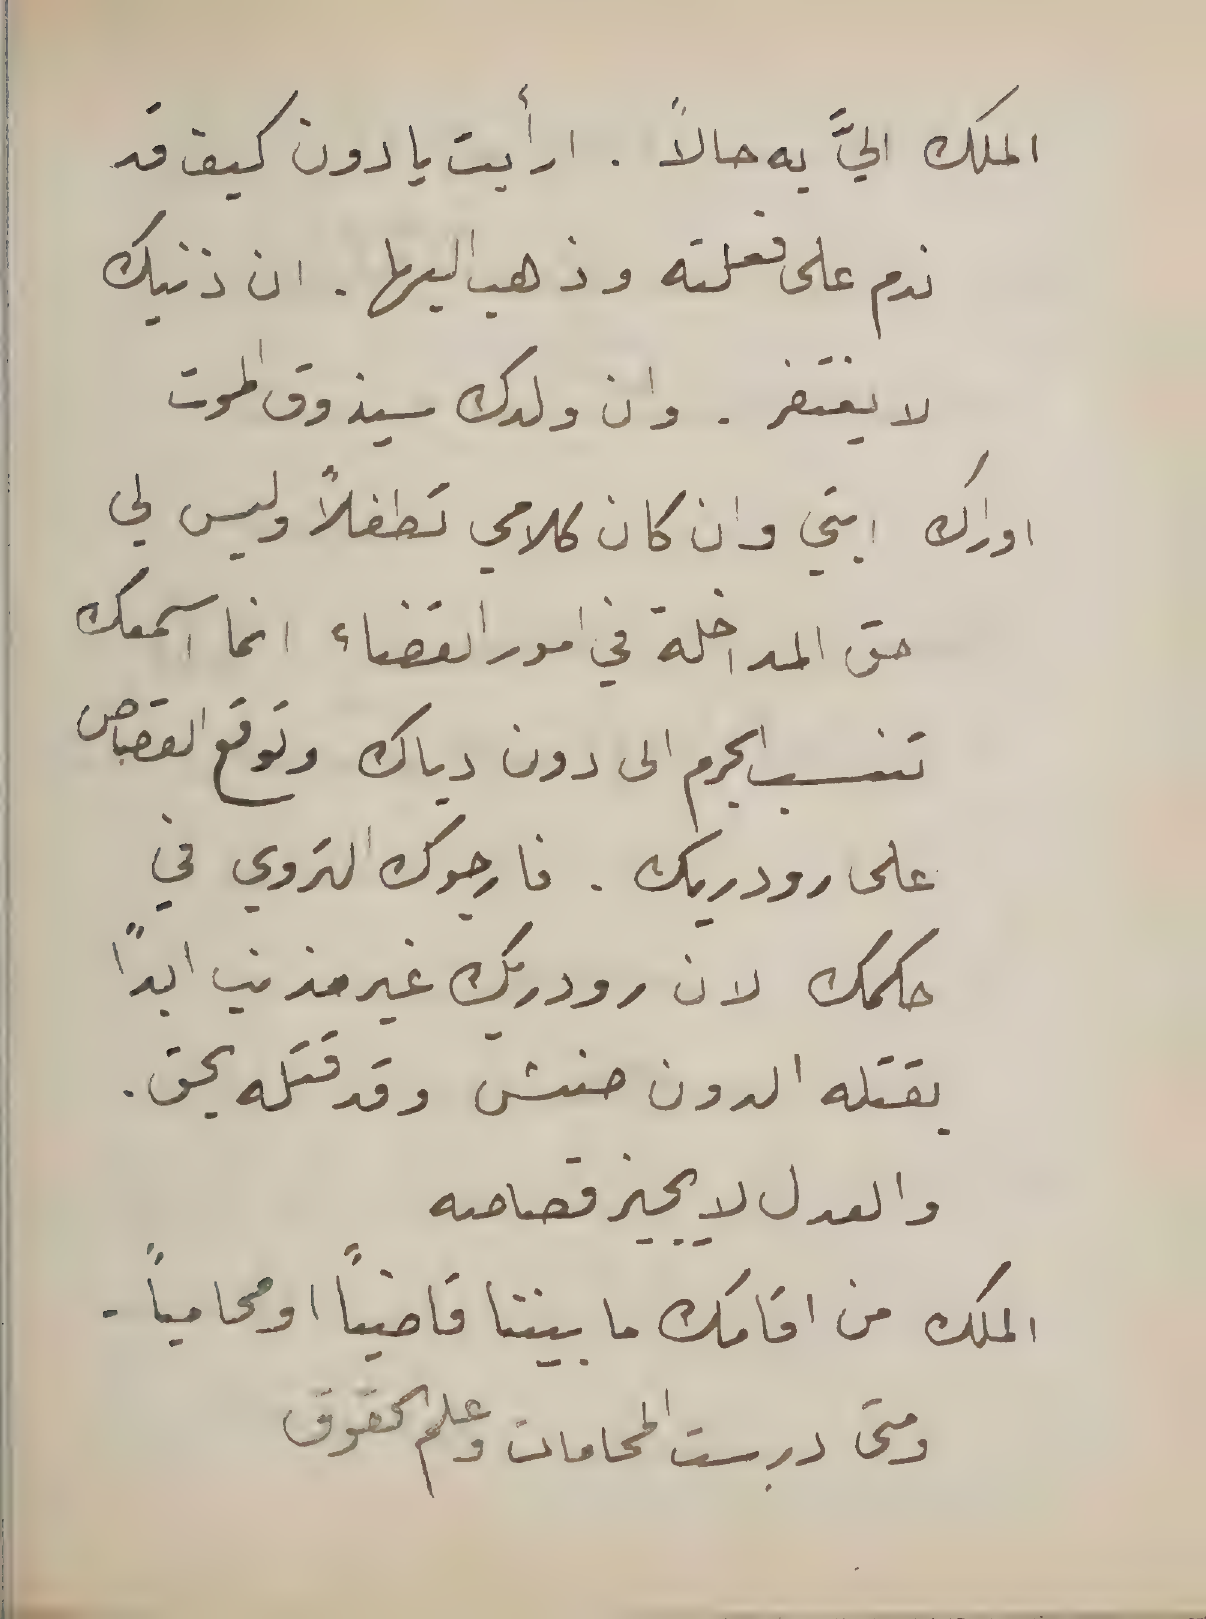 الملك اليَّ به حالاً . ارأيت يا دون كيف قد
ندم على فعلته وذهب اليها . ان ذنبك
لا يغتفر . وان ولدك سيذوق الموت
اوراك ابتي وان كان كلامي تطفلاً وليس لي
حق المداخلة في امور القضاء انما اسمعك
تنسب الجرم الى دون دياك وتوقع القصاص
على رودريك . فارجوك التروي في
حكمك لان رودريك غير مذنب ابداً
بقتله الدون صنش وقد قتله بحق .
والعدل لا يجيز قصاصه
الملك من اقامك ما بيننا قاضياً او محامياً .
ومتى درست المحامات وعلم الحقوق